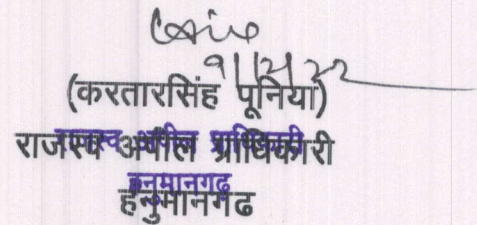 9/12/22
(करतारसिंह पूनिया)
राजस्व अपील प्राधिकारी
राजस्व अपील प्राधिकारी
हनुमानगढ़
हनुमानगढ